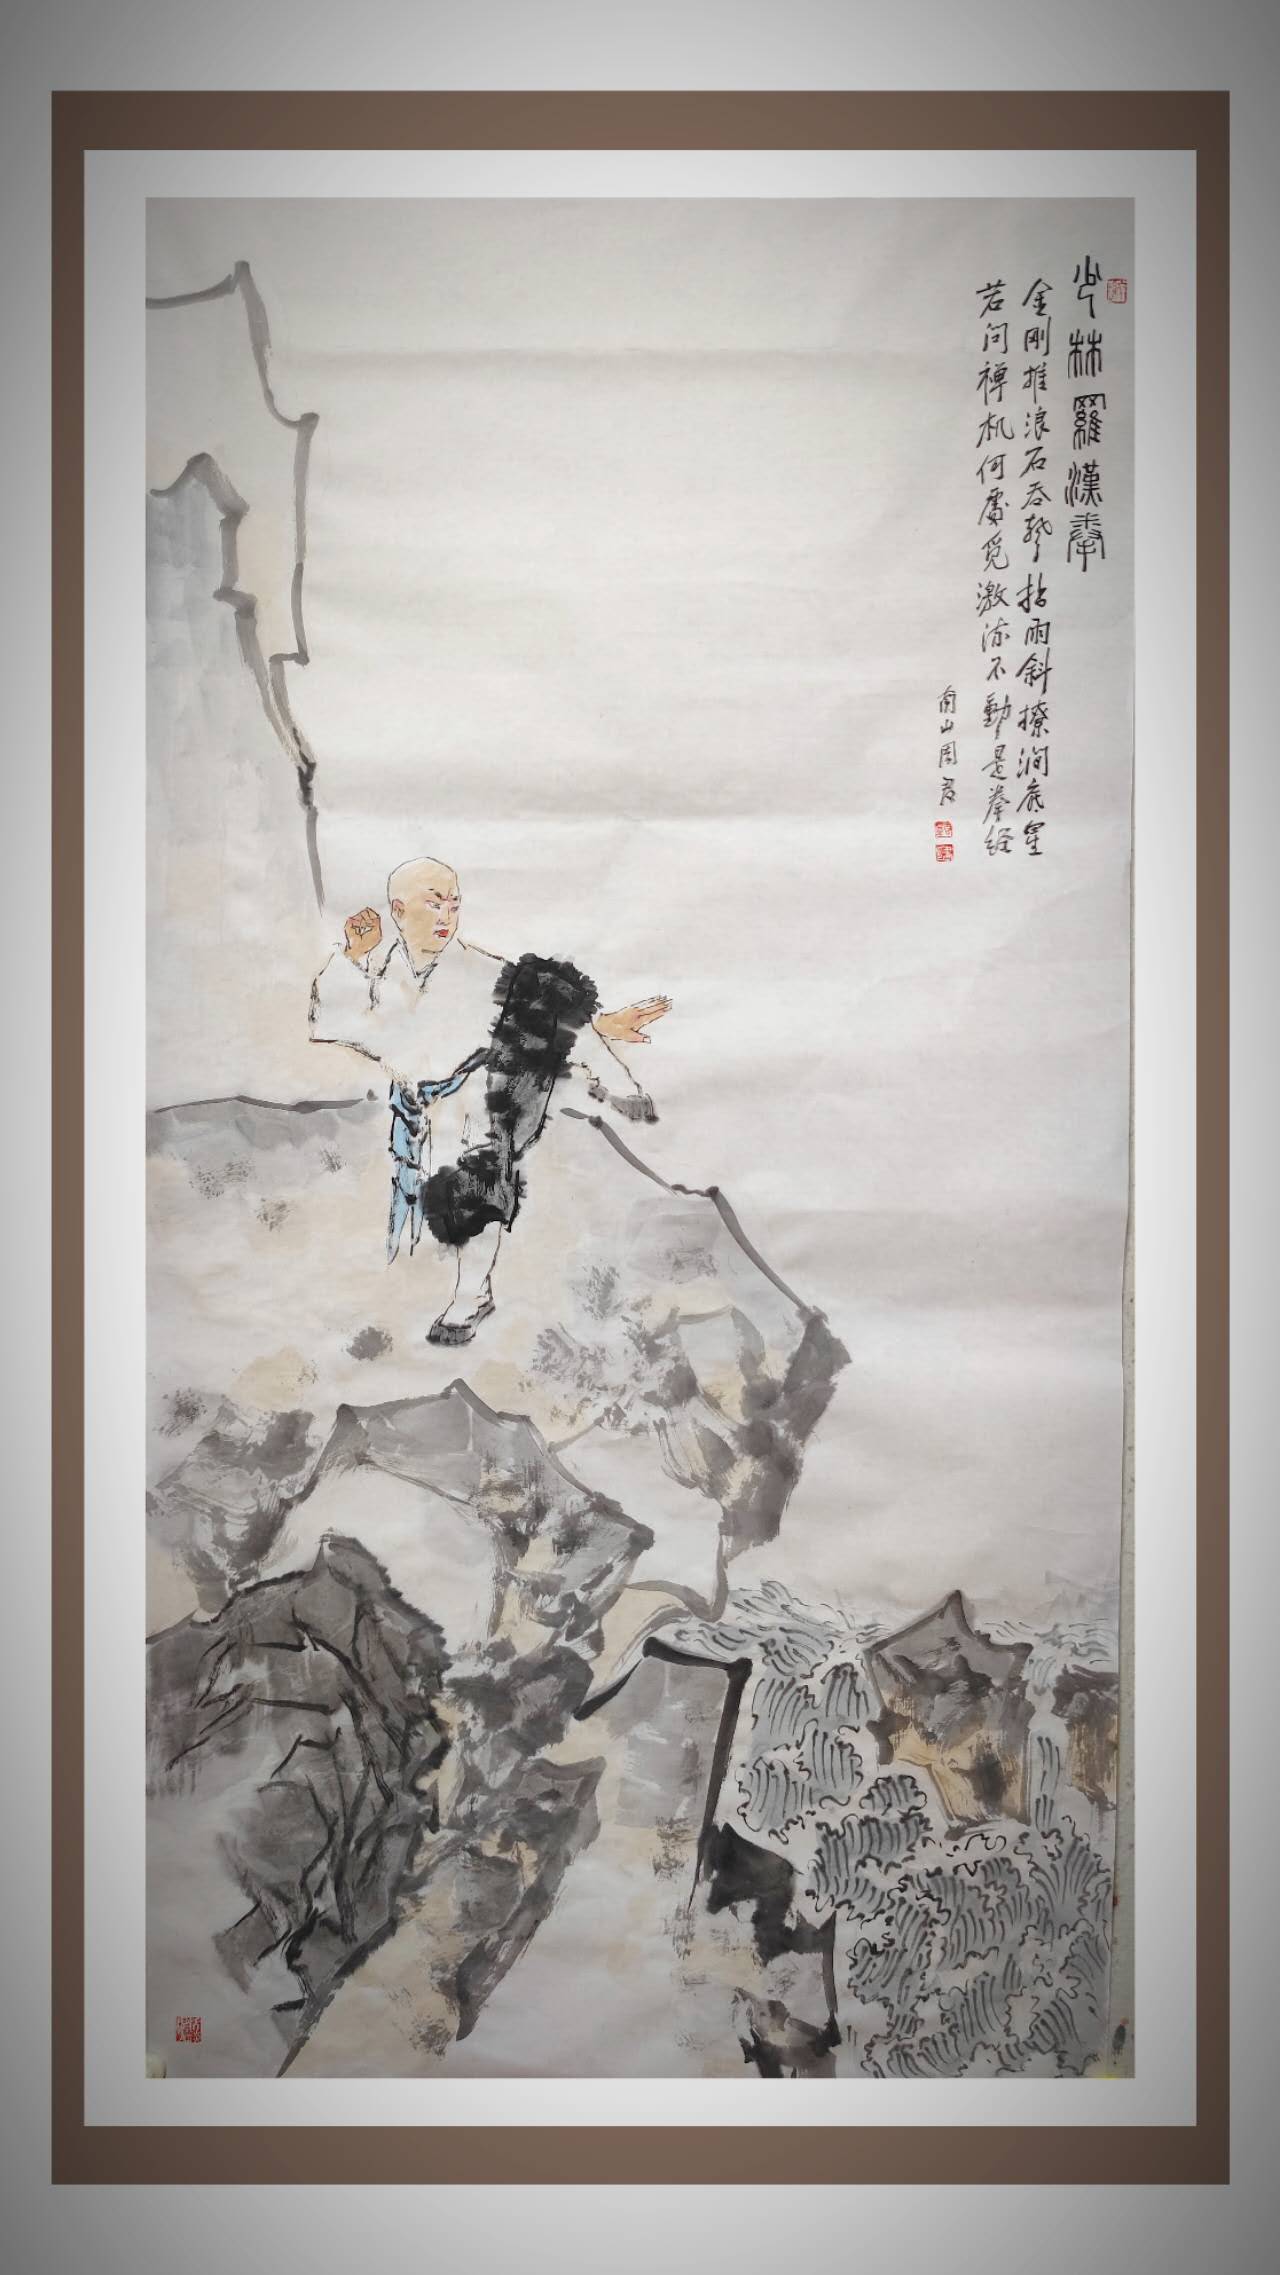 少林羅漢拳
金刚推浪石吞声指雨斜撩涧底星
若问禅机何處觅激流不動是拳经
南山周君